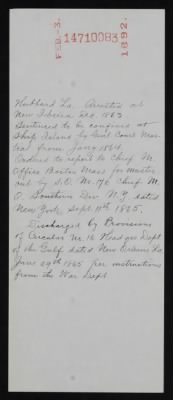 FEB. -3. 14710083 1892.
Hubbard La. Arrested at
New Iberia Dec. 1863
Sentenced to be confined at
Ship Island by Genl Court Mar-
tial from Jany 1864.
Ordered to report to Chief M.
Officer Boston Mass for muster
out by S.O. No. 96 Chief M.
O. Southern Dev N.Y. dated
New York Sept. 11th 1865.
Discharged by Provisions
of Circular No. 16 Head qrs Dept
of the Gulf dated New Orleans La
June 29th 1865 per instructions
from the War Dept